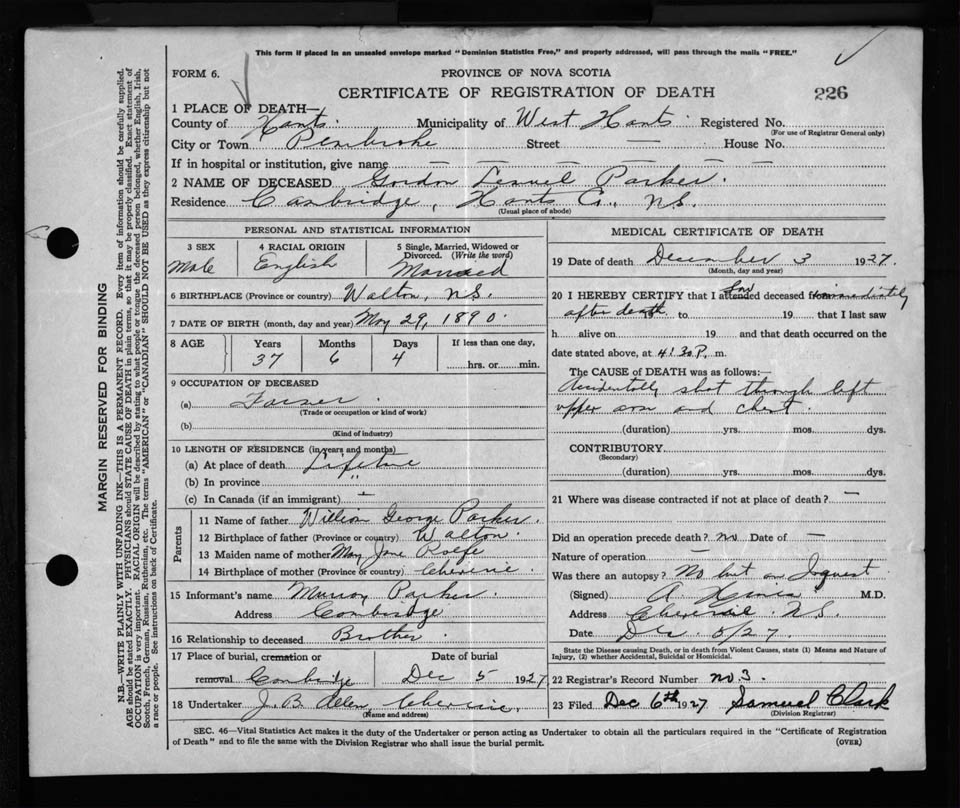 This form if placed in an unsealed envelope marked "Dominion Statistics Free," and properly addressed, will pass through the mails "FREE."
FORM 6.
PROVINCE OF NOVA SCOTIA
CERTIFICATE OF REGISTRATION OF DEATH
226
1 PLACE OF DEATH—
County of Hants. Municipality of West Hants. Registered No.
(For use of Registrar General only)
City or Town Pembroke Street — House No.
If in hospital or institution, give name — — — —
2 NAME OF DECEASED Gordon Parker.
Residence Cambridge, Hants Co., N.S.
(Usual place of abode)
PERSONAL AND STATISTICAL INFORMATION
3 SEX 4 RACIAL ORIGIN 5 Single, Married, Widowed or Divorced. (Write the word)
Male English Married
6 BIRTHPLACE (Province or country) Walton, N.S.
7 DATE OF BIRTH (month, day and year) May 29, 1890.
8 AGE Years Months Days If less than one day,
37 6 4 hrs. or min.
9 OCCUPATION OF DECEASED
(a) Farmer.
(Trade or occupation or kind of work)
(b)
(Kind of industry)
10 LENGTH OF RESIDENCE (in years and months)
(a) At place of death Lifetime
(b) In province "
(c) In Canada (if an immigrant) —
Parents
11 Name of father William George Parker.
12 Birthplace of father (Province or country) Walton.
13 Maiden name of mother May Jane Rolfe
14 Birthplace of mother (Province or country) Cheverie.
15 Informant's name Murray Parker.
Address Cambridge
16 Relationship to deceased Brother.
17 Place of burial, cremation or removal Cambridge Date of burial Dec 5 1927
18 Undertaker J. B. Allen, Cheverie.
(Name and address)
MEDICAL CERTIFICATE OF DEATH
19 Date of death December 3 1927.
(Month, day and year)
20 I HEREBY CERTIFY that I attended saw deceased from immediately
after death 19 to 19 that I last saw
h alive on 19 and that death occurred on the
date stated above, at 4.30 P. m.
The CAUSE of DEATH was as follows:—
Accidentally shot through left
upper arm and chest.
(duration) yrs. mos. dys.
CONTRIBUTORY
(Secondary)
(duration) yrs. mos. dys.
21 Where was disease contracted if not at place of death? —
Did an operation precede death? no Date of —
Nature of operation —
Was there an autopsy? No but an Inquest
(Signed) A M.D.
Address Cheverie N.S.
Date Dec 5/27.
State the Disease causing Death, or in death from Violent Causes, state (1) Means and Nature of
Injury, (2) whether Accidental, Suicidal or Homicidal.
22 Registrar's Record Number no 3.
23 Filed Dec 6th 1927 Samuel Clark
(Division Registrar)
SEC. 46—Vital Statistics Act makes it the duty of the Undertaker or person acting as Undertaker to obtain all the particulars required in the "Certificate of Registration
of Death" and to file the same with the Division Registrar who shall issue the burial permit.
(OVER)
MARGIN RESERVED FOR BINDING
N.B.—WRITE PLAINLY WITH UNFADING INK—THIS IS A PERMANENT RECORD. Every item of information should be carefully supplied.
AGE should be stated EXACTLY. PHYSICIANS should STATE CAUSE OF DEATH in plain terms, so that it may be properly classified. Exact statement of
OCCUPATION is very important. RACIAL ORIGIN will be described by stating to what people or tongue the deceased person belonged, whether English, Irish,
Scotch, French, German, Russian, Ruthenian, etc. The terms "AMERICAN" or "CANADIAN" SHOULD NOT BE USED as they express citizenship but not
a race or people. See instructions on back of Certificate.